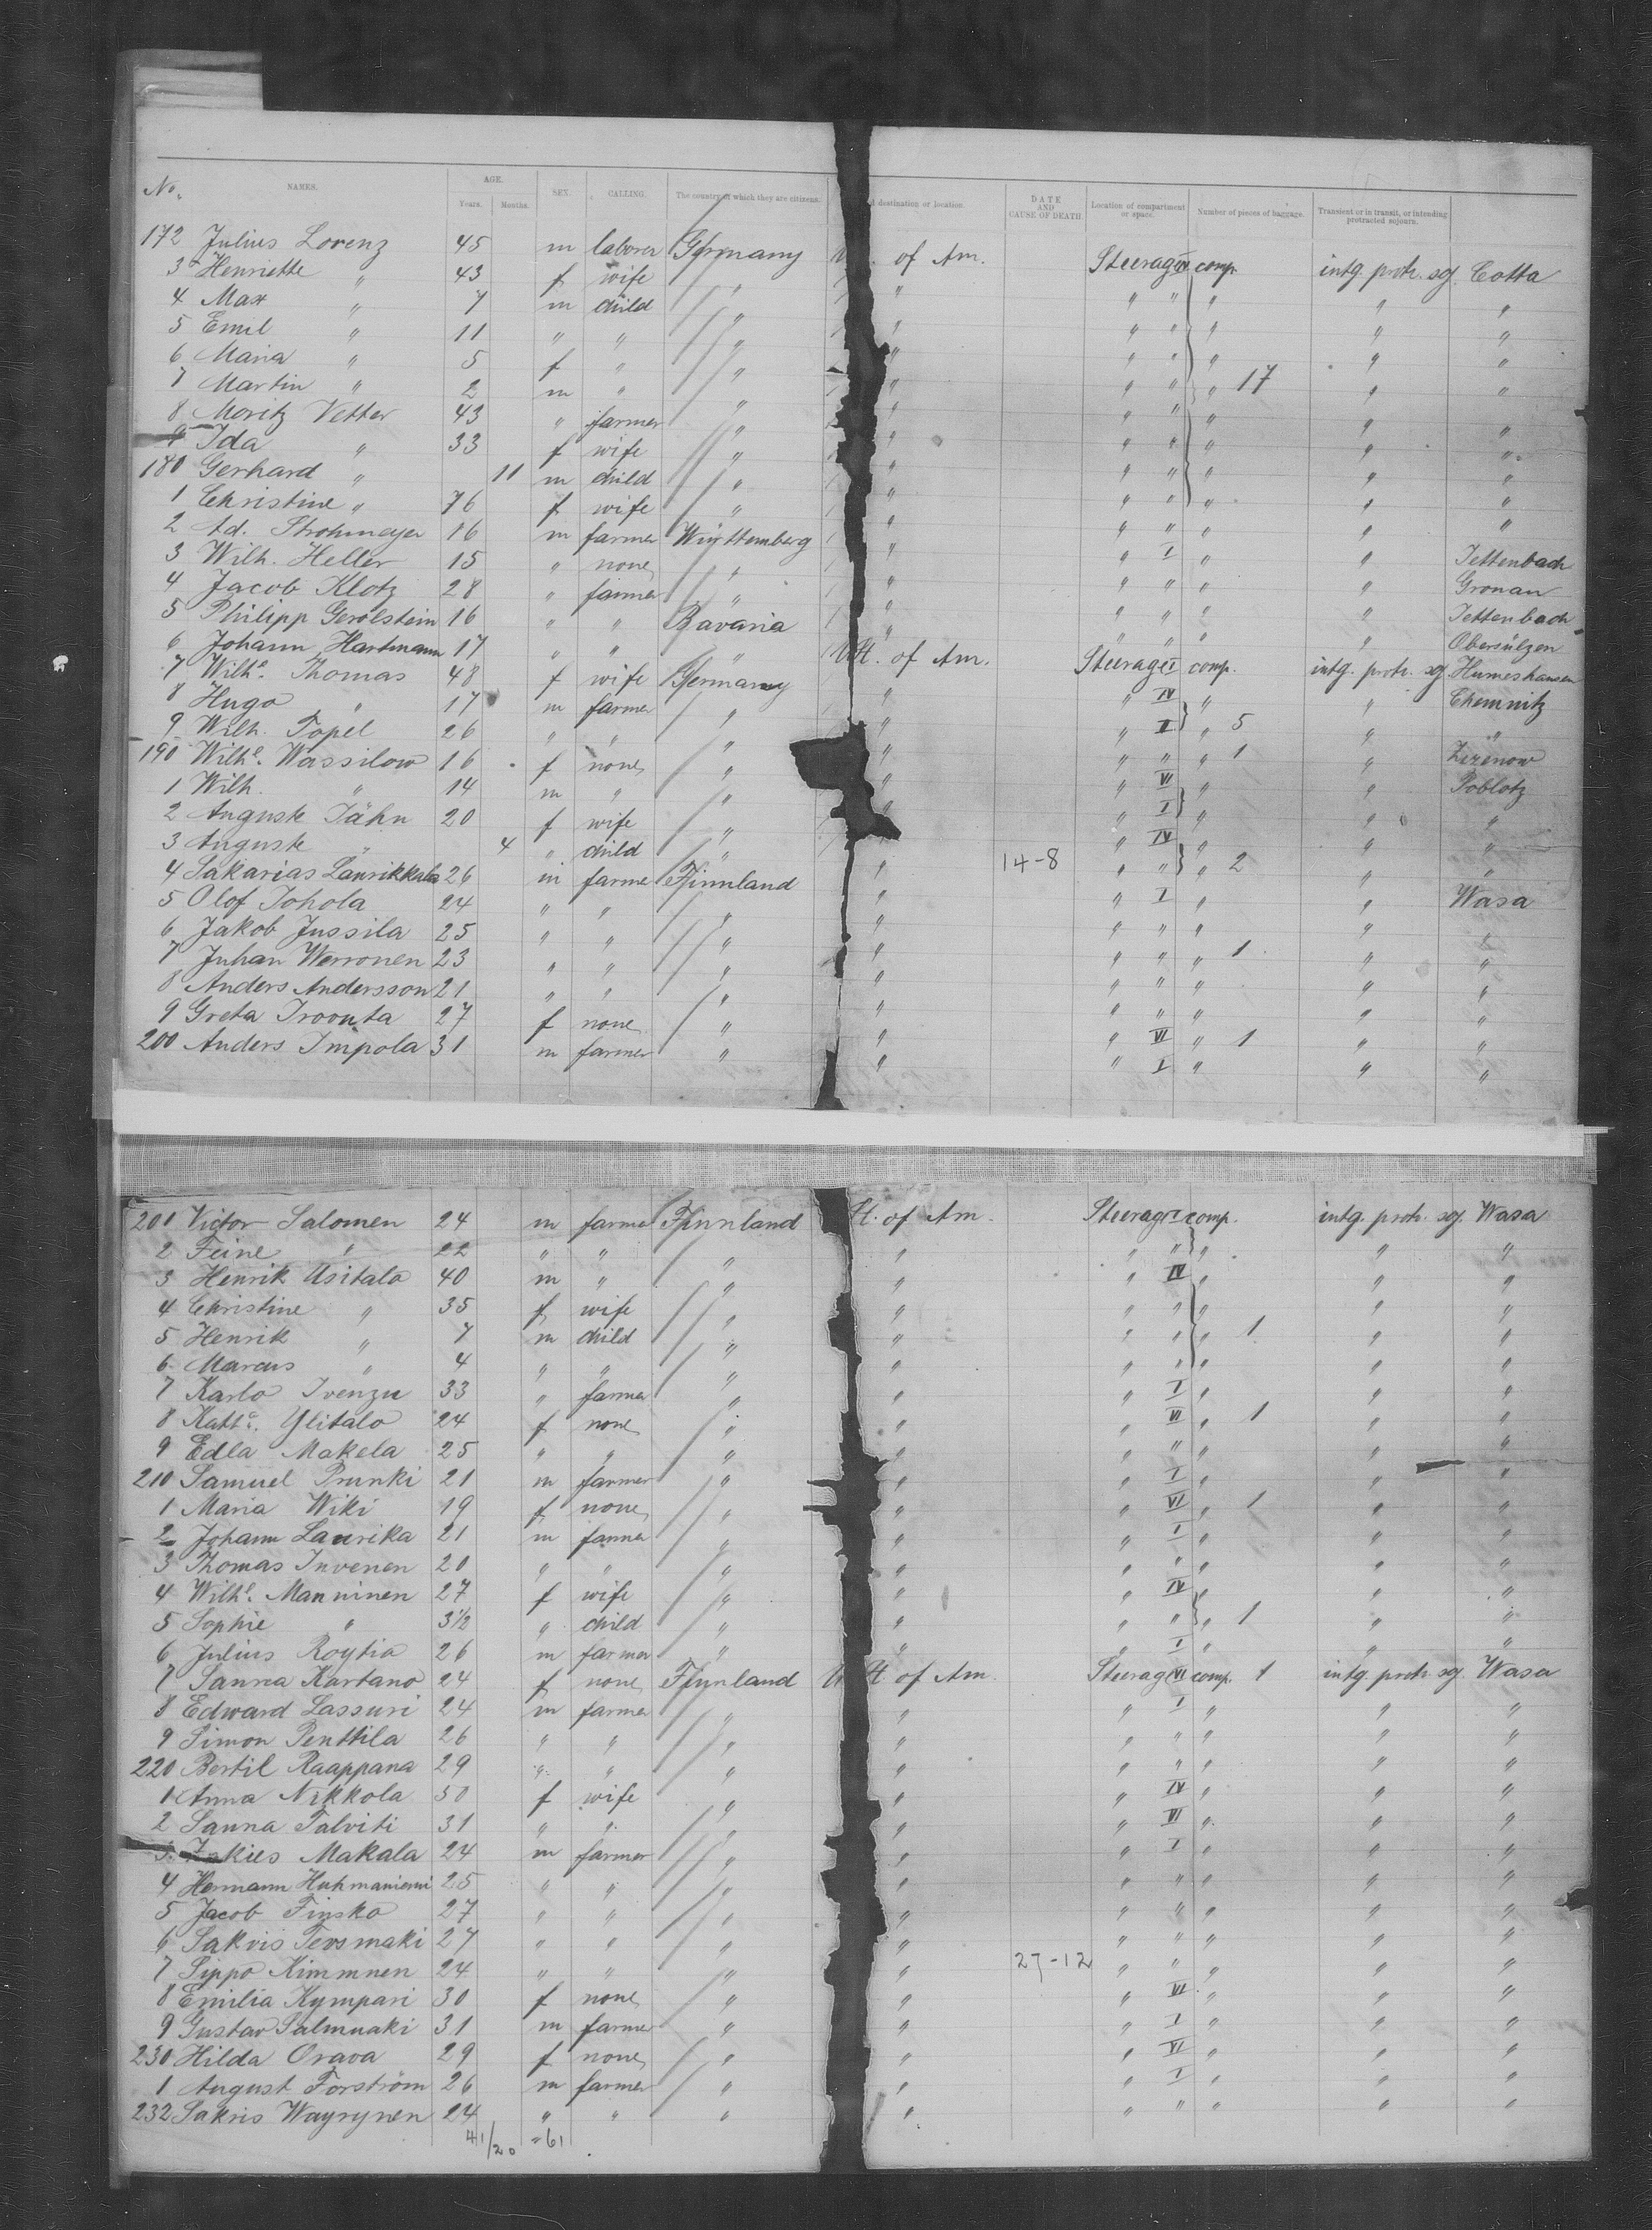 No. NAMES. AGE. Years. Months. SEX. CALLING. The country of which they are citizens. destination or location. DATE AND CAUSE OF DEATH. Location of compartment or space. Number of pieces of baggage. Transient or in transit, or intending protracted sojourn.
172 Julius Lorenz 45 m laborer Germany of Am. Steerage IV comp. intg. protr. soj. Cotta
3 Henriette " 43 f wife " " " " " " "
4 Max " 7 m child " " " " " " "
5 Emil " 11 " " " " " " " " "
6 Maria " 5 f " " " " " " 17 " "
7 Martin " 2 m " " " " " " " "
8 Moritz Vetter 43 " farmer " " " " " " "
9 Ida " 33 f wife " " " " " " "
180 Gerhard " 11 m child " " " " " " "
1 Christine " 76 f wife " " " " " " "
2 Ad. Strohmeyer 16 m farmer Württemberg " " I " " Tettenbach
3 Wilh. Heller 15 " none " " " " " " Gronau
4 Jacob Klotz 28 " farmer " " " " " " Tettenbach
5 Philipp Gerolstein 16 " " Bavaria " " " " " Obersülzen
6 Johann Hartmann 17 " " " U St. of Am. Steerage I comp. intg. protr. soj. Humeshausen
7 Wilhe. Thomas 48 f wife Germany " " IV " " Chemnitz
8 Hugo " 17 m farmer " " " II " 5 " "
9 Wilh. Topel 26 " " " " " " " 1 " Zezenow
190 Wilhe. Wassilow 16 f none " " " VI " " Poblotz
1 Wilh. " 14 m " " " " I " " "
2 Auguste Jähn 20 f wife " " " IV " " "
3 Auguste " 4 " child " " 14-8 " " " 2 " "
4 Sakarias Laurikkala 26 m farmer Finnland " " I " " Wasa
5 Olof Johola 24 " " " " " " " " "
6 Jakob Jussila 25 " " " " " " " 1 " "
7 Juhan Werronen 23 " " " " " " " " "
8 Anders Andersson 21 " " " " " " " " "
9 Greta Troonta 27 f none " " " VI " 1 " "
200 Anders Impola 31 m farmer " " " I " " "
201 Victor Salomen 24 m farmer Finnland St. of Am. Steerage I comp. intg. protr. soj. Wasa
2 Feine " 22 " " " " " " " " "
3 Henrik Usitalo 40 m " " " " IV " " "
4 Christine " 35 f wife " " " " " " "
5 Henrik " 7 m child " " " " " 1 " "
6 Marcus " 4 " " " " " " " " "
7 Karlo Ivenzu 33 " farmer " " " I " " "
8 Katha. Ylitalo 24 f none " " " VI " 1 " "
9 Edla Makela 25 " " " " " " " " "
210 Samuel Prunki 21 m farmer " " " I " " "
1 Maria Wiki 19 f none " " " VI " 1 " "
2 Johann Laurika 21 m farmer " " " I " " "
3 Thomas Invenen 20 " " " " " " " " "
4 Wilhe. Manninen 27 f wife " " " IV " " "
5 Sophie " 3½ " child " " " " " 1 " "
6 Julius Roytia 26 m farmer " " " I " " "
7 Sanna Kartano 24 f none Finnland U St of Am. Steerage VI comp. 1 intg. protr. soj. Wasa
8 Edward Lassuri 24 m farmer " " " I " " "
9 Simon Penttila 26 " " " " " " " " "
220 Bertil Raappana 29 " " " " " " " " "
1 Anna Nikkola 50 f wife " " " IV " " "
2 Sanna Talviti 31 " " " " " VI " " "
3 Makala 24 m farmer " " " I " " "
4 Hermann Huhmaniemi 25 " " " " " " " " "
5 Jacob Finsko 27 " " " " " " " " "
6 Sakris Tersmaki 27 " " " " " " " " "
7 Sippo Kimmnen 24 " " " " 27-12 " " " " "
8 Emilia Kympari 30 f none " " " VI " " "
9 Gustav Salmnaki 31 m farmer " " " I " " "
230 Hilda Orava 29 f none " " " VI " " "
1 August Forström 26 m farmer " " " I " " "
232 Sakris Wayrynen 24 " " " " " " " " "
41/20 =61